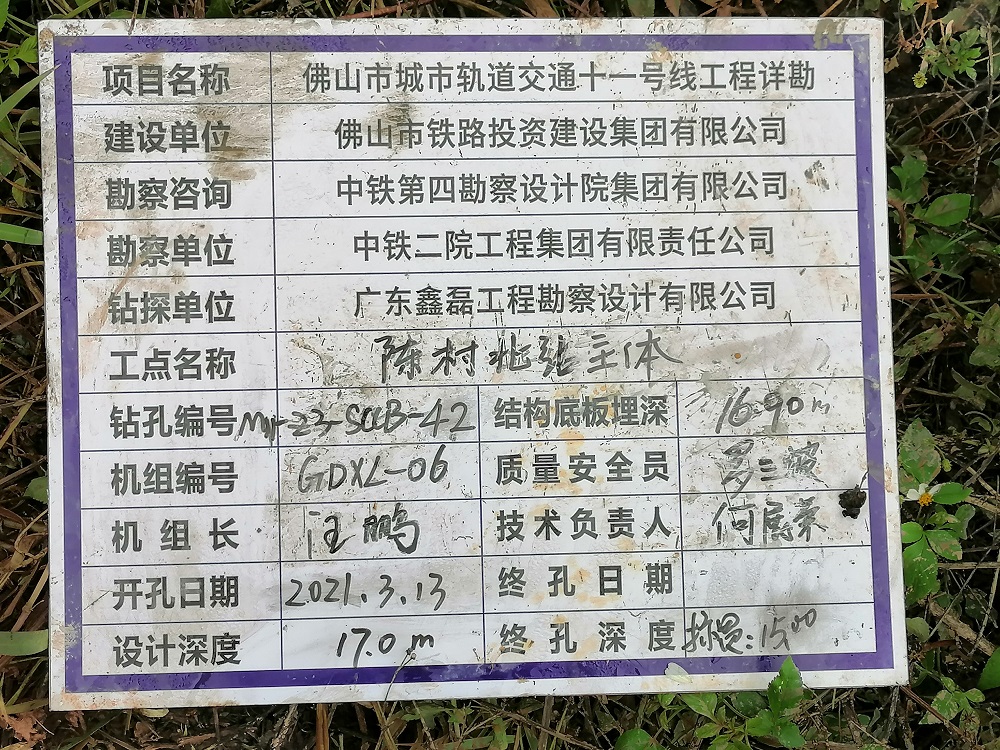 项目名称 佛山市城市轨道交通十一号线工程详勘
建设单位 佛山市铁路投资建设集团有限公司
勘察咨询 中铁第四勘察设计院集团有限公司
勘察单位 中铁二院工程集团有限责任公司
钻探单位 广东鑫磊工程勘察设计有限公司
工点名称 陈村北站主体
钻孔编号 -Z3-SCCB-42 结构底板埋深 16.90m
机组编号 GDXL-06 质量安全员
机组长 汪鹏 技术负责人
开孔日期 2021.3.13 终孔日期
设计深度 17.0m 终孔深度 :15.00